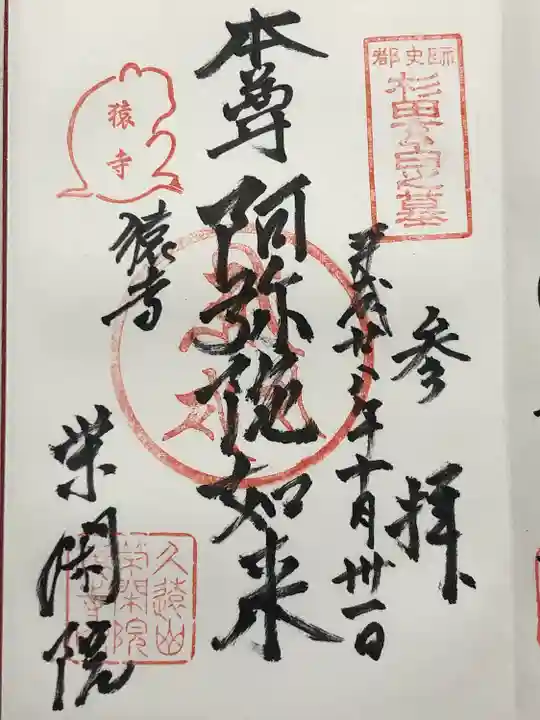 都史跡
杉田玄白之墓
参拝
平成廿八年十月卅一日
本尊
阿弥陀如来
猿寺
猿寺
栄閑院
久遠山
栄閑院